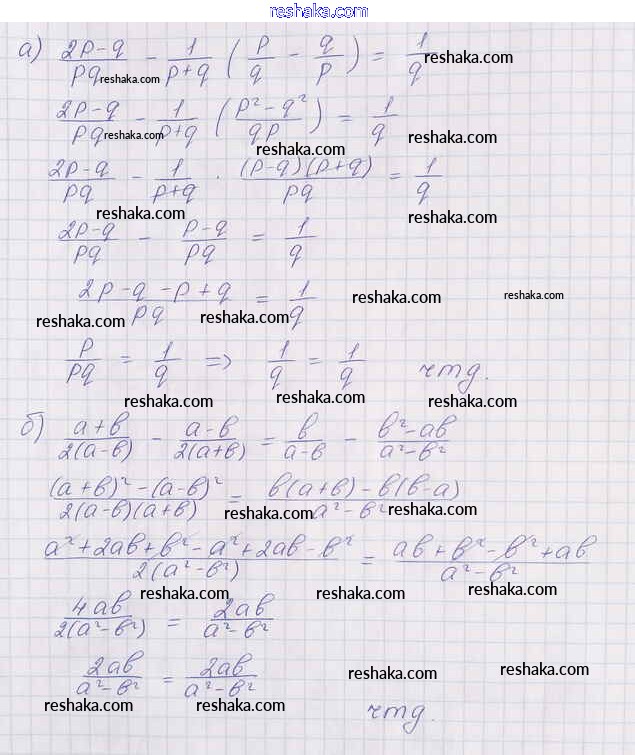 reshaka.com
а) (2p-q)/(pq) - 1/(p+q) (p/q - q/p) = 1/q
reshaka.com reshaka.com
(2p-q)/(pq) - 1/(p+q) ((p²-q²)/(qp)) = 1/q
reshaka.com reshaka.com
reshaka.com
(2p-q)/(pq) - 1/(p+q) · ((p-q)(p+q))/(pq) = 1/q
reshaka.com reshaka.com
(2p-q)/(pq) - (p-q)/(pq) = 1/q
reshaka.com reshaka.com
(2p-q-p+q)/(pq) = 1/q
reshaka.com reshaka.com
reshaka.com reshaka.com
p/(pq) = 1/q => 1/q = 1/q чтд.
reshaka.com reshaka.com reshaka.com
б) (a+b)/(2(a-b)) - (a-b)/(2(a+b)) = b/(a-b) - (b²-ab)/(a²-b²)
reshaka.com reshaka.com
((a+b)²-(a-b)²)/(2(a-b)(a+b)) = (b(a+b)-b(b-a))/(a²-b²)
reshaka.com reshaka.com
(a²+2ab+b²-a²+2ab-b²)/(2(a²-b²)) = (ab+b²-b²+ab)/(a²-b²)
reshaka.com reshaka.com reshaka.com
(4ab)/(2(a²-b²)) = (2ab)/(a²-b²)
reshaka.com reshaka.com
(2ab)/(a²-b²) = (2ab)/(a²-b²)
reshaka.com reshaka.com
reshaka.com reshaka.com
чтд.